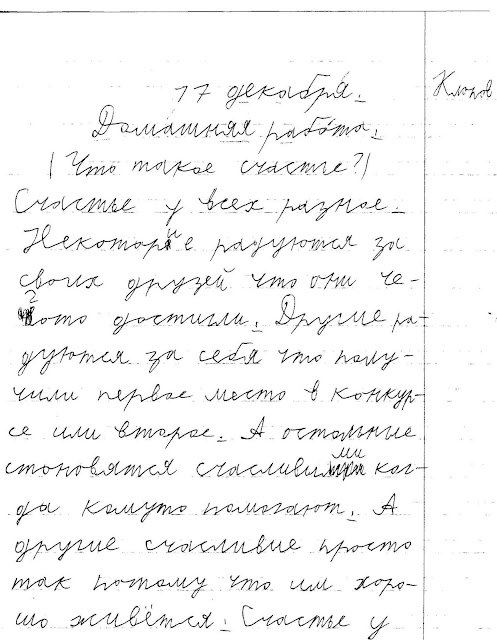 17 декабря.
Клопов
Домашняя работа.
(Что такое счастье?)
Счастье у всех разное.
Некоторые радуются за
своих друзей что они че-
гото достигли. Другие ра-
дуются за себя что полу-
чили первое место в конкур-
се или второе. А остомние
стоновятся счасливими ког-
да комуто помогают. А
другие счасливие просто
так потому что им хоро-
шо живётся. Счастье у